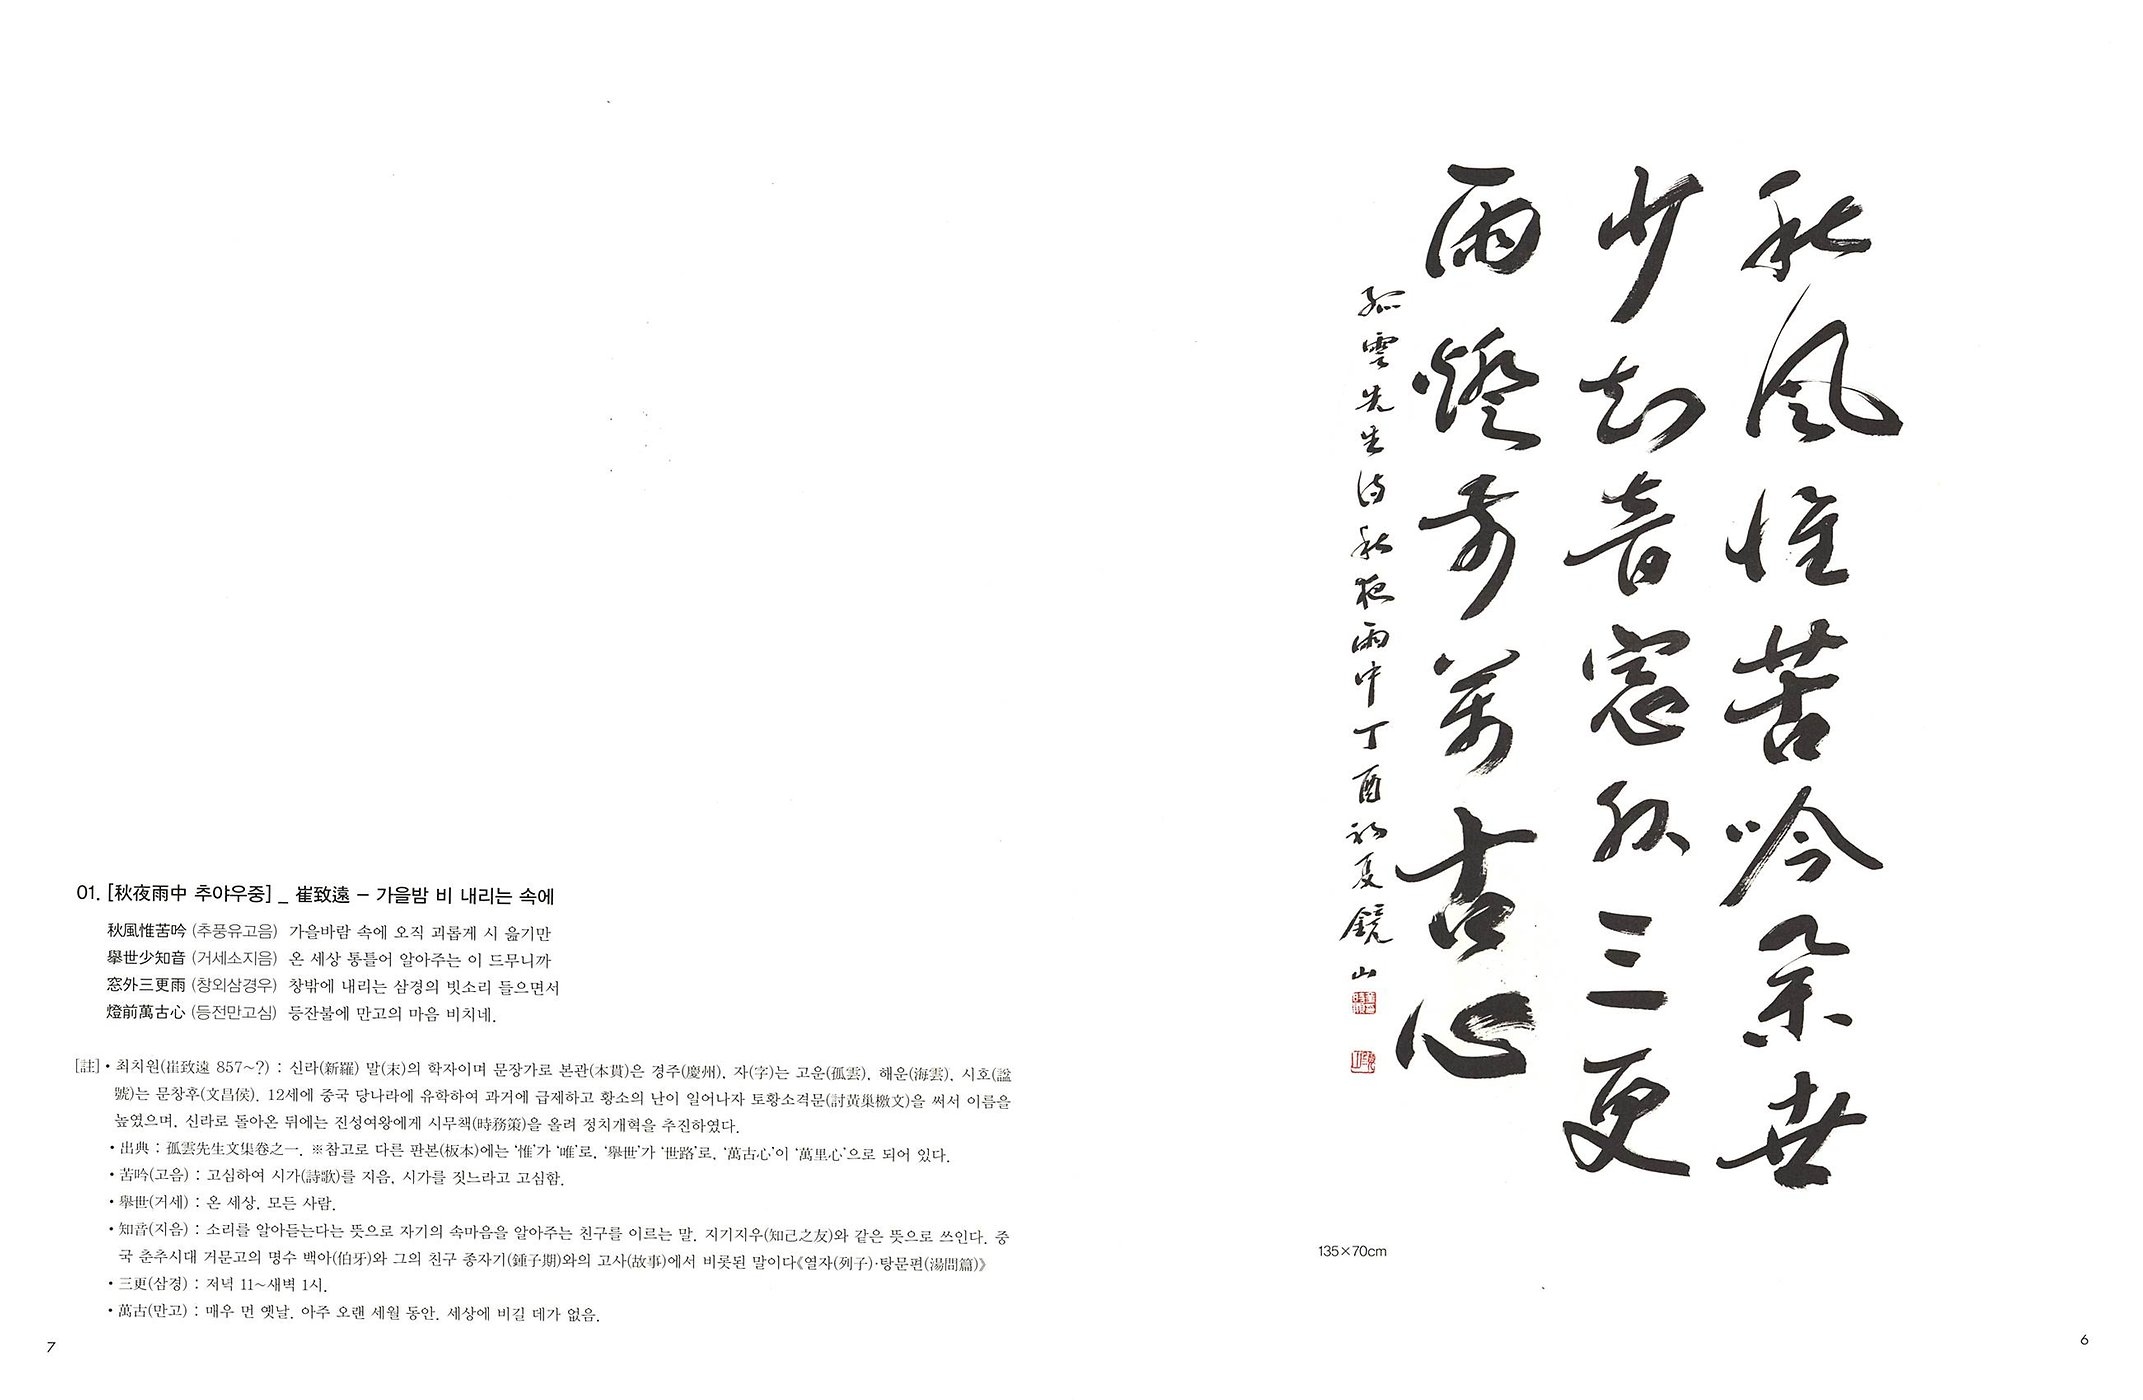 秋風惟苦吟擧世
少知音窓外三更
雨燈前萬古心
孤雲先生詩秋夜雨中丁酉初夏鏡山
135×70cm
6
01. [秋夜雨中 추야우중] _ 崔致遠 – 가을밤 비 내리는 속에
秋風惟苦吟 (추풍유고음) 가을바람 속에 오직 괴롭게 시 읊기만
擧世少知音 (거세소지음) 온 세상 통틀어 알아주는 이 드무니까
窓外三更雨 (창외삼경우) 창밖에 내리는 삼경의 빗소리 들으면서
燈前萬古心 (등전만고심) 등잔불에 만고의 마음 비치네.
[註] • 최치원(崔致遠 857~?) : 신라(新羅) 말(末)의 학자이며 문장가로 본관(本貫)은 경주(慶州), 자(字)는 고운(孤雲), 해운(海雲), 시호(諡
號)는 문창후(文昌侯). 12세에 중국 당나라에 유학하여 과거에 급제하고 황소의 난이 일어나자 토황소격문(討黃巢檄文)을 써서 이름을
높였으며, 신라로 돌아온 뒤에는 진성여왕에게 시무책(時務策)을 올려 정치개혁을 추진하였다.
• 出典 : 孤雲先生文集卷之一. ※참고로 다른 판본(板本)에는 '惟'가 '唯'로, '擧世'가 '世路'로, '萬古心'이 '萬里心'으로 되어 있다.
• 苦吟(고음) : 고심하여 시가(詩歌)를 지음. 시가를 짓느라고 고심함.
• 擧世(거세) : 온 세상. 모든 사람.
• 知音(지음) : 소리를 알아듣는다는 뜻으로 자기의 속마음을 알아주는 친구를 이르는 말. 지기지우(知己之友)와 같은 뜻으로 쓰인다. 중
국 춘추시대 거문고의 명수 백아(伯牙)와 그의 친구 종자기(鍾子期)와의 고사(故事)에서 비롯된 말이다《열자(列子)·탕문편(湯問篇)》
• 三更(삼경) : 저녁 11~새벽 1시.
• 萬古(만고) : 매우 먼 옛날. 아주 오랜 세월 동안. 세상에 비길 데가 없음.
7